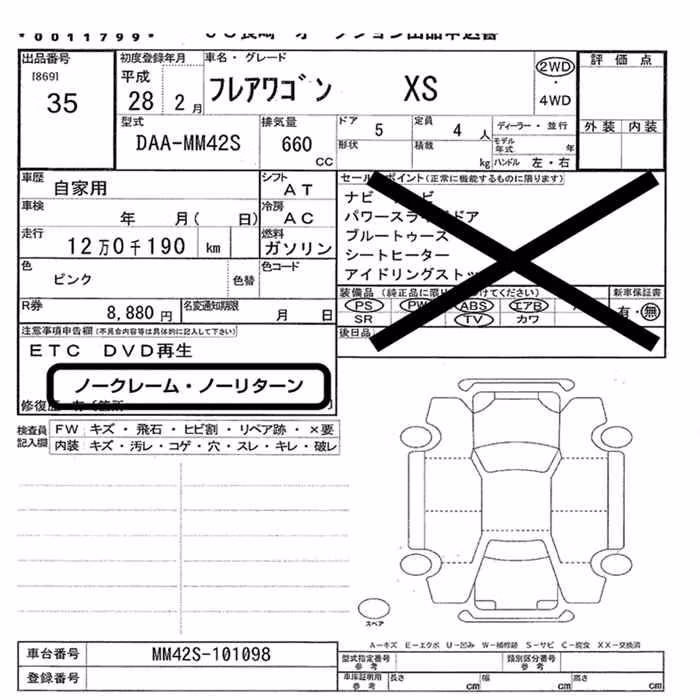 *0011799*
出品番号
[869]
35
初度登録年月
平成
28 2月
車名・グレード
フレアワゴン XS
2WD
・
4WD
評価点
外装 内装
型式
DAA-MM42S
排気量
660
CC
ドア 5
定員 4 人
形状
積載 kg
ディーラー・並行
モデル年式 年
ハンドル 左・右
車歴
自家用
シフト
AT
車検
年 月( 日)
冷房
AC
走行
12万0千190 km
燃料
ガソリン
色
ピンク
色替
色コード
R券
8,880 円
名変通知期限
月 日
セールスポイント(正常に機能するものに限ります)
ナビ
パワースライドドア
ブルートゥース
シートヒーター
アイドリングストッ
装備品
PS PW ABS エアB
SR TV カワ
新車保証書
有・無
後日品
注意事項申告欄(不具合内容等は具体的に記入して下さい)
ETC DVD再生
ノークレーム・ノーリターン
検査員記入欄
FW キズ・飛石・ヒビ割・リペア跡・×要
内装 キズ・汚レ・コゲ・穴・スレ・キレ・破レ
スペア
A-キズ E-エクボ U-凹み W-補修跡 S-サビ C-腐食 XX-交換済
車台番号 MM42S-101098
登録番号
型式指定番号
参考
類別区分番号
参考
車庫証明用
参考
長さ cm 幅 cm 高さ cm